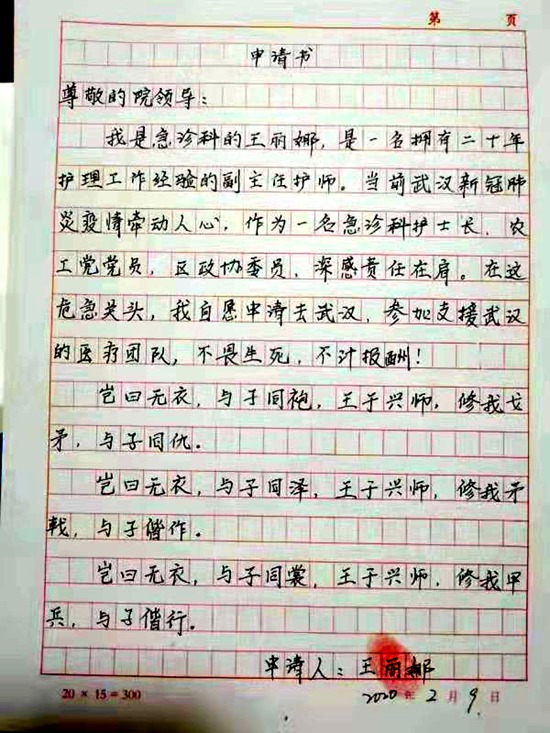 第 页
申请书
尊敬的院领导：
我是急诊科的王丽娜，是一名拥有二十年
护理工作经验的副主任护师。当前武汉新冠肺
炎疫情牵动人心，作为一名急诊科护士长，农
工党党员，区政协委员，深感责任在肩。在这
危急关头，我自愿申请去武汉，参加支援武汉
的医疗团队，不畏生死，不计报酬！
岂曰无衣，与子同袍，王于兴师，修我戈
矛，与子同仇。
岂曰无衣，与子同泽，王于兴师，修我矛
戟，与子偕作。
岂曰无衣，与子同裳，王于兴师，修我甲
兵，与子偕行。
申请人：王丽娜
20 × 15 = 300 2020年2月9日